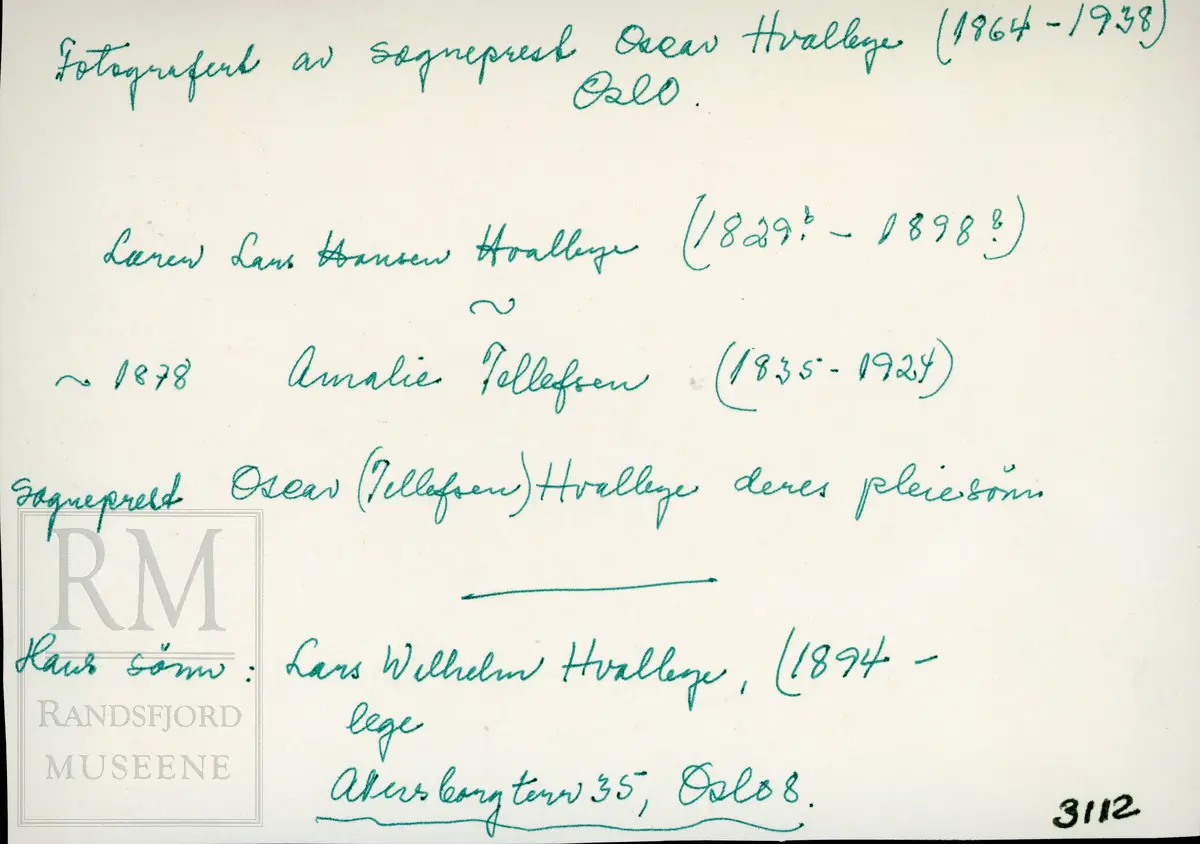 Fotografert av sogneprest Oscar Hvalbye (1864-1938)
Oslo.
Lærer Lars Hansen Hvalbye (1829? - 1898?)
~
~ 1878 Amalie Tellefsen (1835-1924)
Sogneprest Oscar (Tellefsen) Hvalbye deres pleiesönn
Hans sönn: Lars Wilhelm Hvalbye, (1894 -
lege
Akersborg terr 35, Oslo 8.
3112
RM
RANDSFJORD
MUSEENE